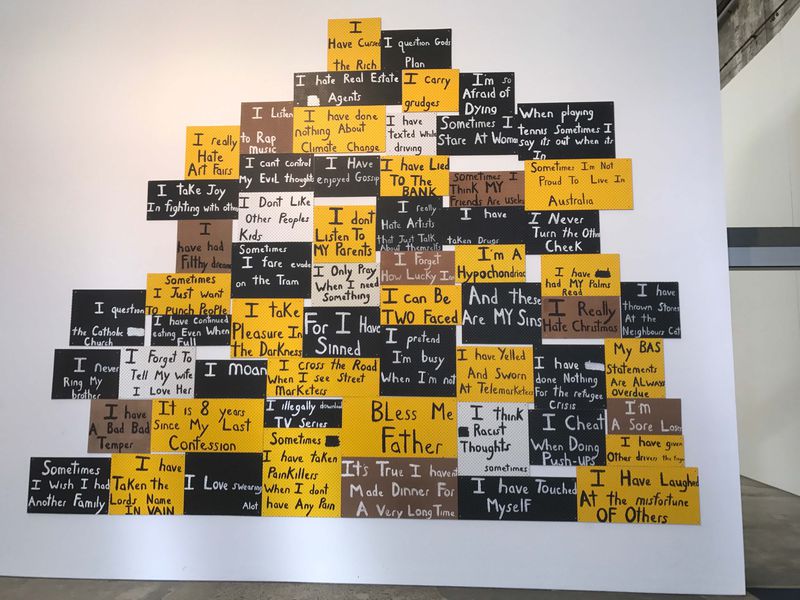 I
Have Cursed
the Rich
I question Gods
Plan
I hate Real Estate
Agents
I carry
grudges
I'm so
Afraid of
Dying
I Listen
to Rap
music
I have done
nothing About
Climate Change
I have
texted While
driving
Sometimes I
Stare At
When playing
tennis Sometimes I
say its out when its
In
I really
Hate
Art Fairs
I cant control
My Evil thoughts
I Have
enjoyed Gossip
I have Lied
To The
BANK
Sometimes I
Think MY
Friends Are
Sometimes I'm Not
Proud To Live In
Australia
I take Joy
In fighting with
I Dont Like
Other Peoples
Kids
I dont
Listen To
MY Parents
I really
Hate Artists
that Just Talk
About themselfs
I have
taken Drugs
I Never
Turn the Other
Cheek
I
have had
Filthy dreams
Sometimes
I fare evade
on the Tram
I Only Pray
When I need
Something
I Forget
How Lucky I
I'm A
Hypochondriac
I have
had MY Palms
Read
Sometimes
I Just want
To punch People
I question
the Catholic
Church
I have Continued
eating Even When
Full
I take
Pleasure In
The Darkness
For I Have
Sinned
I can Be
TWO Faced
And these
Are MY Sins
I Really
Hate Christmas
I have
thrown Stones
At the
Neighbours Cat
I pretend
I'm busy
When I'm not
I never
Ring My
brother
I Forget To
Tell My wife
I Love Her
I moan
I cross the Road
When I see Street
Marketers
I have Yelled
And Sworn
At Telemarketers
I have
done Nothing
For the refugee
Crisis
My BAS
Statements
Are ALways
overdue
I have
A Bad Bad
Temper
It is 8 years
Since My Last
Confession
I illegally download
TV Series
BLess Me
Father
I think
Racist
Thoughts
sometimes
I Cheat
When Doing
Push-ups
I'm
A Sore Loser
Sometimes
I have taken
PainKillers
When I dont
have Any Pain
I have given
Other drivers the finger
Sometimes
I Wish I had
Another Family
I have
Taken the
Lords Name
IN VAIN
I Love swearing
Alot
It's True I havent
Made Dinner For
A Very Long Time
I have Touched
Myself
I Have Laughed
At the misfortune
OF Others